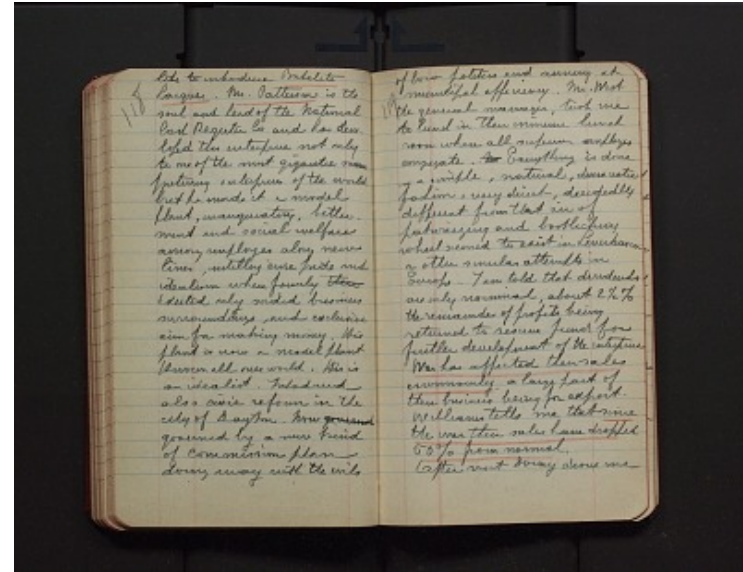 118
like to introduce Bakelite
Lacquer. Mr. Patterson is the
soul and head of the National
Cash Register Co and has deve
loped this enterprise not only
to one of the most gigantic
facturing enterprises of the world
but he made it a model
plant, inaugurating, better-
ment and social welfare
among employes along new
lines, instilling pride and
idealism where formerly
existed only sordid business
surroundings, and exclusive
aim for making money. His
plant is now a model plant
known all over world. He is
an idealist. Introduced
also civic reform in the
city of Dayton. Now governed
governed by a new kind
of commission plan
doing away with the evils
of low politics and aiming at
municipal efficiency. Mr. West
the general manager, took me
to lunch in their immense lunch
room where all superior employes
congregate. Everything is done
in a simple, natural, democratic
fashion, very direct, decidedly
different from that
patronizing and bootlicking
which seemed to exist in Leverkusen
or other similar attempts in
Europe. I am told that dividends
are only nominal, about 2%
the remainder of profits being
returned to reserve fund for
further development of the enterprise
War has affected their sales
enormously a large part of
their business being for export.
Williams tells me that since
the war their sales have dropped
50% from normal.
After visit Doing drove me